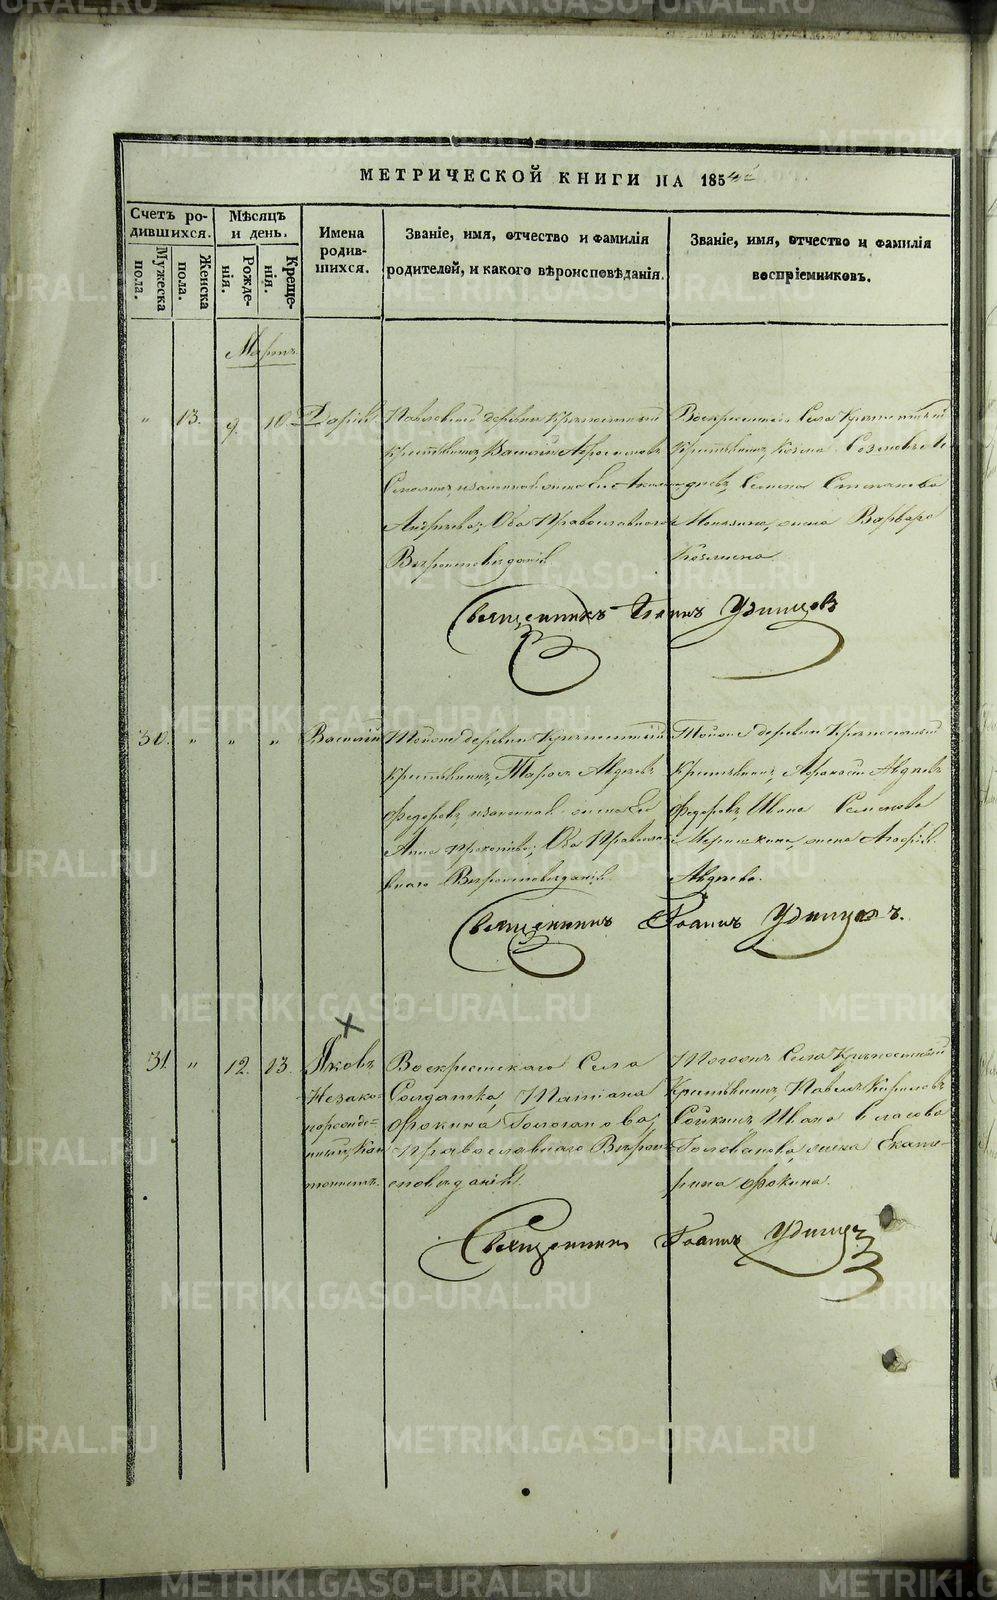 МЕТРИЧЕСКОЙ КНИГИ НА 185
Счетъ ро-
дившихся.
Мужеска
пола.
Женска
пола.
Мѣсяцъ
и день.
Рожде-
нія.
Креще-
нія.
Имена
родив-
шихся.
Званіе, имя, отчество и фамилія
родителей, и какого вѣроисповѣданія.
Званіе, имя, отчество и фамилія
воспріемниковъ.
Мартъ
" 13. 9. 10. Дарія
деревни Крѣпостный
Крестьянинъ, Василій
законная жена Ея
Андреева; Оба Православнаго
Вѣроисповѣданія.
Воскресенскаго Села Крѣпостный
Крестьянинъ, Козма
Семена Степанова
жена Варвара
Козмина.
Священникъ Іоаннъ Удинцовъ
30. " " " Василій
Тойже деревни Крѣпостный
Крестьянинъ, Тарасъ Авдеевъ
Федоровъ, законная жена Ея
Анна Прокопьева; Оба Правосла-
внаго Вѣроисповѣданія.
Тойже деревни Крѣпостный
Крестьянинъ, Афанасій Авдеевъ
Федоровъ, Ивана Семенова
жена Агафія
Авдеева.
Священникъ Іоаннъ Удинцовъ.
31. " 12. 13. Яковъ
Незако-
норожде-
нный, Кан
тонистъ.
Воскресенскаго Села
Солдатка, Татіана
Фокина Голованова,
Православнаго Вѣрои-
сповѣданія.
Тогожъ Села Крѣпостный
Крестьянинъ, Павелъ Кириловъ
Сойкинъ, Ивана Власова
Голованова, жена Екате-
рина Фокина.
Священникъ Іоаннъ Удинцовъ
METRIKI.GASO-URAL.RU